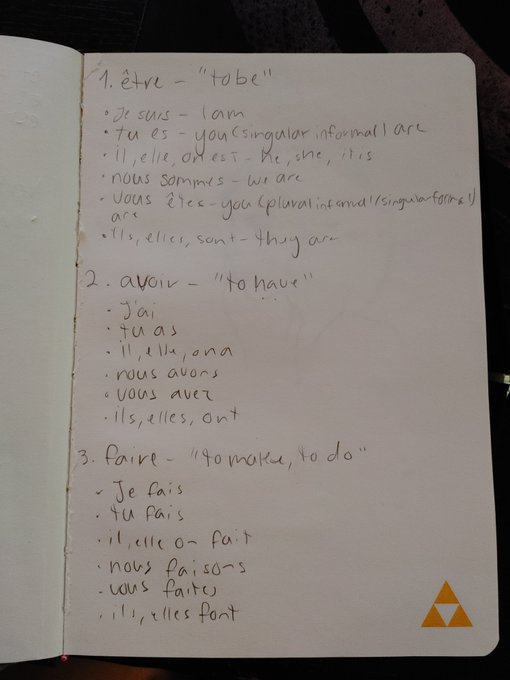 1. être - "to be"
• Je suis - I am
• tu es - you (singular informal) are
• il, elle, on est - he, she, it is
• nous sommes - we are
• vous êtes - you (plural informal/singular formal)
are
• ils, elles, sont - they are
2. avoir - "to have"
• J'ai
• tu as
• il, elle, on a
• nous avons
• vous avez
• ils, elles, ont
3. faire - "to make, to do"
• Je fais
• tu fais
• il, elle on fait
• nous faisons
• vous faites
• ils, elles font